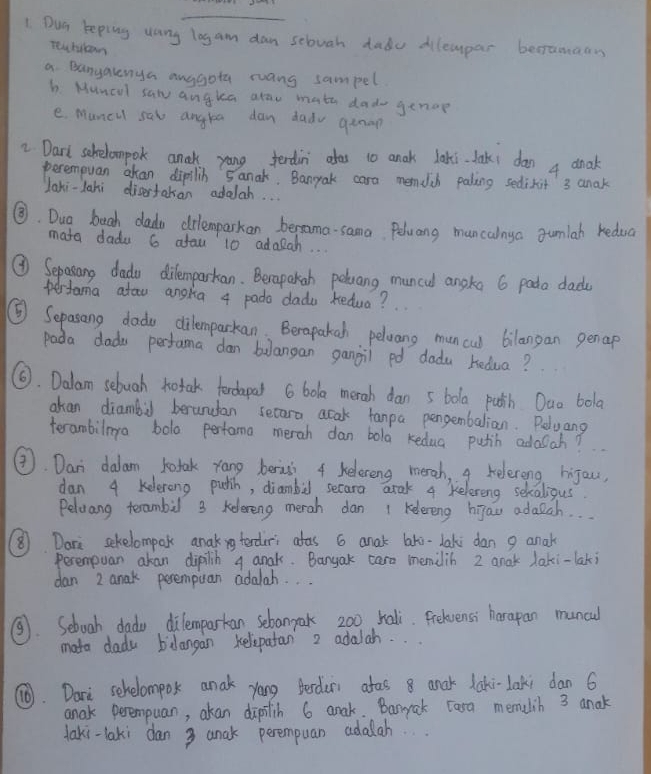 1. Dua keping uang logam dan sebuah dadu dilempar bersamaan
Tentukan
a. Banyaknya anggota ruang sampel.
b. Muncul satu angka atau mata dadu genap
c. Muncul satu angka dan dadu genap
2. Dari sekelompok anak yang terdiri atas 10 anak laki-laki dan 4 anak
perempuan akan dipilih 5 anak. Banyak cara memilih paling sedikit 3 anak
laki-laki disertakan adalah ...
3. Dua buah dadu dilemparkan bersama-sama. Peluang munculnya jumlah kedua
mata dadu 6 atau 10 adalah ...
4 Sepasang dadu dilemparkan. Berapakah peluang muncul angka 6 pada dadu
pertama atau angka 4 pada dadu kedua? ...
5 Sepasang dadu dilemparkan. Berapakah peluang muncul bilangan genap
pada dadu pertama dan bilangan ganjil pd dadu kedua? ...
6. Dalam sebuah kotak terdapat 6 bola merah dan 5 bola putih. Dua bola
akan diambil berurutan secara acak tanpa pengembalian. Peluang
terambilnya bola pertama merah dan bola kedua putih adalah? ...
7. Dari dalam kotak yang berisi 4 kelereng merah, 4 kelereng hijau,
dan 4 kelereng putih, diambil secara acak 4 kelereng sekaligus.
Peluang terambil 3 kelereng merah dan 1 kelereng hijau adalah ...
8 Dari sekelompok anak yg terdiri atas 6 anak laki-laki dan 9 anak
Perempuan akan dipilih 4 anak. Banyak cara memilih 2 anak laki-laki
dan 2 anak perempuan adalah ...
9. Sebuah dadu dilemparkan sebanyak 200 kali. Frekuensi harapan muncul
mata dadu bilangan kelipatan 2 adalah ...
10. Dari sekelompok anak yang terdiri atas 8 anak laki-laki dan 6
anak perempuan, akan dipilih 6 anak. Banyak cara memilih 3 anak
laki-laki dan 3 anak perempuan adalah ...